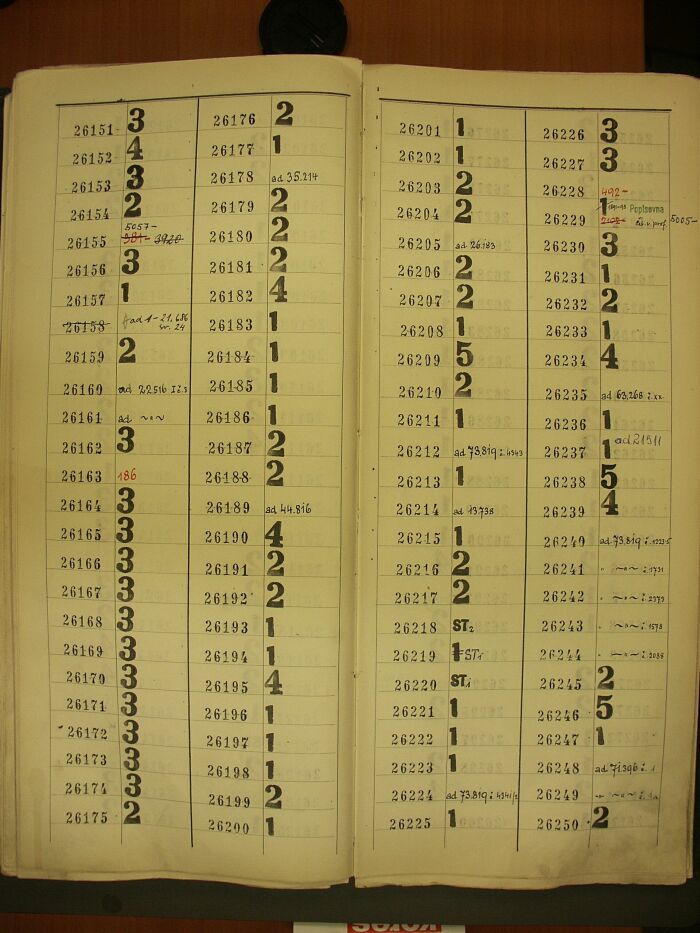 26151 3
26152 4
26153 3
26154 2
5057-
26155 381- 3920
26156 3
26157 1
26158 ad 1-21,686
26159 2
26160 ad 22516
26161 ad ~"~
26162 3
26163 186
26164 3
26165 3
26166 3
26167 3
26168 3
26169 3
26170 3
26171 3
26172 3
26173 3
26174 3
26175 2
26176 2
26177 1
26178 ad 35.214
26179 2
26180 2
26181 2
26182 4
26183 1
26184 1
26185 1
26186 1
26187 2
26188 2
26189 ad 44.816
26190 4
26191 2
26192 2
26193 1
26194 1
26195 4
26196 1
26197 1
26198 1
26199 2
26200 1
26201 1
26202 1
26203 2
26204 2
26205 ad 26.183
26206 2
26207 2
26208 1
26209 5
26210 2
26211 1
26212 ad 73,819 i. 4343
26213 1
26214 ad 13738
26215 1
26216 2
26217 2
26218 ST2
26219 1 ST1
26220 ST1
26221 1
26222 1
26223 1
26224 ad 73.819 i. 4341/2
26225 1
26226 3
26227 3
26228 492-
26229 1 Popisovna 5005-
26230 3
26231 1
26232 2
26233 1
26234 4
26235 ad 63,268 i. xx
26236 1
26237 1 ad 21511
26238 5
26239 4
26240 ad 73,819
26241 " ~"~ i. 1731
26242 " ~"~ i. 2373
26243 " ~"~ i. 1578
26244 " ~"~ i. 2088
26245 2
26246 5
26247 1
26248 ad 71.396 i. 1
26249 ~"~
26250 2